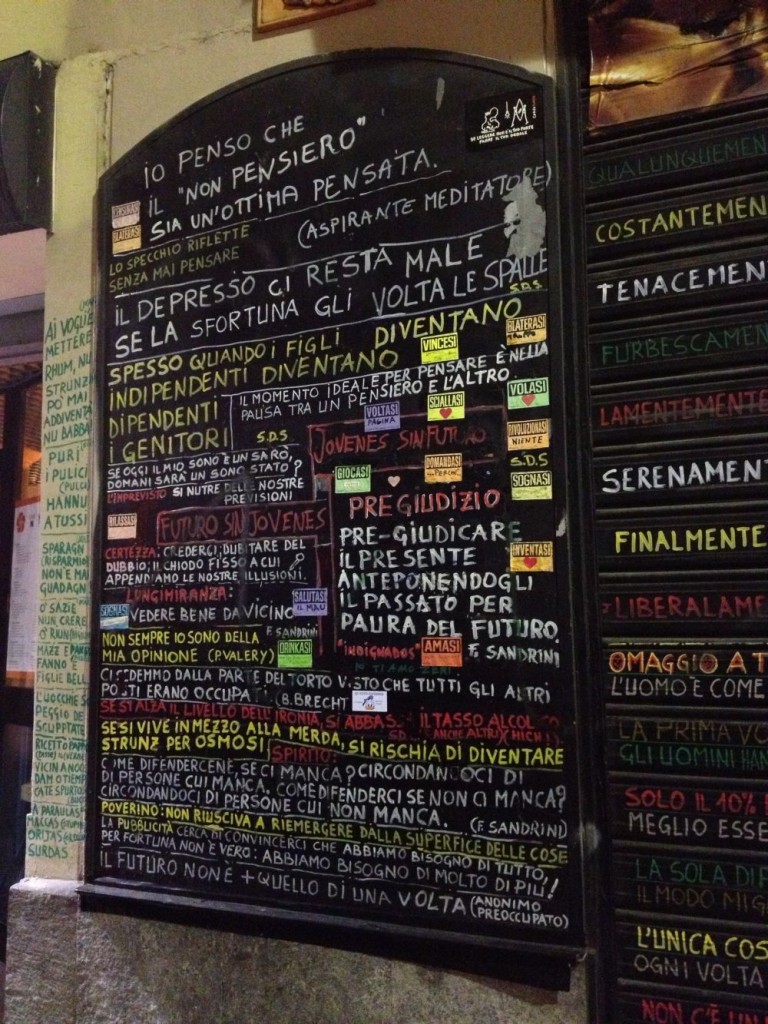 IO PENSO CHE
IL "NON PENSIERO"
SIA UN'OTTIMA PENSATA.
(ASPIRANTE MEDITATORE)
BLATERASI
LO SPECCHIO RIFLETTE
SENZA MAI PENSARE
IL DEPRESSO CI RESTA MALE
SE LA SFORTUNA GLI VOLTA LE SPALLE
S.D.S.
SPESSO QUANDO I FIGLI DIVENTANO
INDIPENDENTI DIVENTANO
DIPENDENTI
I GENITORI
S.D.S
VINCESI
BLATERASI
IL MOMENTO IDEALE PER PENSARE È NELLA
PAUSA TRA UN PENSIERO E L'ALTRO.
VOLTASI
PAGINA
SCIALLASI
VOLASI
RIVOLUZIONASI
NIENTE
S.D.S
SOGNASI
JOVENES SIN FUTURO
SE OGGI IL MIO SONO È UN SARÒ,
DOMANI SARÀ UN SONO STATO?
L'IMPREVISTO SI NUTRE DELLE NOSTRE
PREVISIONI
GIOCASI
DOMANDASI
PERCHÉ
RILASSASI
FUTURO SIN JOVENES
PREGIUDIZIO
PRE-GIUDICARE
IL PRESENTE
ANTEPONENDOGLI
IL PASSATO PER
PAURA DEL FUTURO.
F. SANDRINI
INVENTASI
CERTEZZA: CREDERCI; DUBITARE DEL
DUBBIO; IL CHIODO FISSO A CUI
APPENDIAMO LE NOSTRE ILLUSIONI.
LUNGIMIRANZA:
VEDERE BENE DA VICINO
F. SANDRINI
SOGNASI
SALUTASI
IL MAU
"INDIGNADOS"
AMASI
NON SEMPRE IO SONO DELLA
MIA OPINIONE (P. VALERY)
DRINKASI
CI SEDEMMO DALLA PARTE DEL TORTO VISTO CHE TUTTI GLI ALTRI
POSTI ERANO OCCUPATI (B. BRECHT)
SE S'ALZA IL LIVELLO DELL'IRONIA, SI ABBASSA IL TASSO ALCOLICO
SE SI VIVE IN MEZZO ALLA MERDA, SI RISCHIA DI DIVENTARE
STRUNZ PER OSMOSI
SPIRITO:
COME DIFENDERCENE, SE CI MANCA? CIRCONDANDOCI DI
DI PERSONE CUI MANCA. COME DIFENDERCI SE NON CI MANCA?
CIRCONDANDOCI DI PERSONE CUI NON MANCA. (F. SANDRINI)
POVERINO: NON RIUSCIVA A RIEMERGERE DALLA SUPERFICE DELLE COSE
LA PUBBLICITÀ CERCA DI CONVINCERCI CHE ABBIAMO BISOGNO DI TUTTO,
PER FORTUNA NON È VERO: ABBIAMO BISOGNO DI MOLTO DI PIÙ!
IL FUTURO NON È + QUELLO DI UNA VOLTA (ANONIMO
PREOCCUPATO)
AI VOGLIA
METTERE
RHUM, NU
STRUNZ
PO' MAI
ADDIVENTA
NU BABBA
PURI
I PULICI
HANNU
A TUSSI
SPARAGN
NON E MAI
GUADAGN
FANNO E
FIGLIE BELL
L'UOCCHIE S
PEGGIO DE
VICIN A NOI
SURDAS
QUALUNQUEMEN
COSTANTEMEN
TENACEMEN
FURBESCAMEN
LAMENTEMENTE
SERENAMEN
FINALMENTE
LIBERALAME
OMAGGIO A T
L'UOMO È COME
LA PRIMA VO
GLI UOMINI HAN
SOLO IL 10%
MEGLIO ESSE
LA SOLA DIF
IL MODO MIG
L'UNICA COS
OGNI VOLTA
NON C'È UN